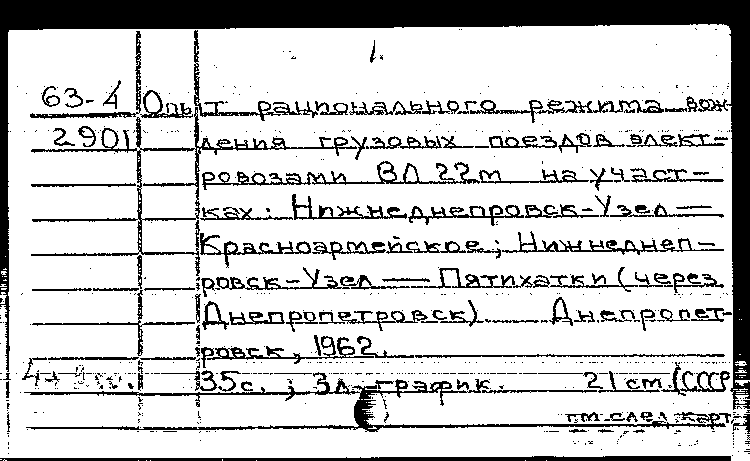 1.
63-4 Опыт рационального режима вож-
2901 дения грузовых поездов элект-
ровозами ВЛ 22м на участ-
ках: Нижнеднепровск-Узел —
Красноармейское; Нижнеднеп-
ровск-Узел — Пятихатки (через
Днепропетровск) Днепропет-
ровск, 1962.
35 с. ; 3 л. график. 21 см. (СССР
см. след. карт.